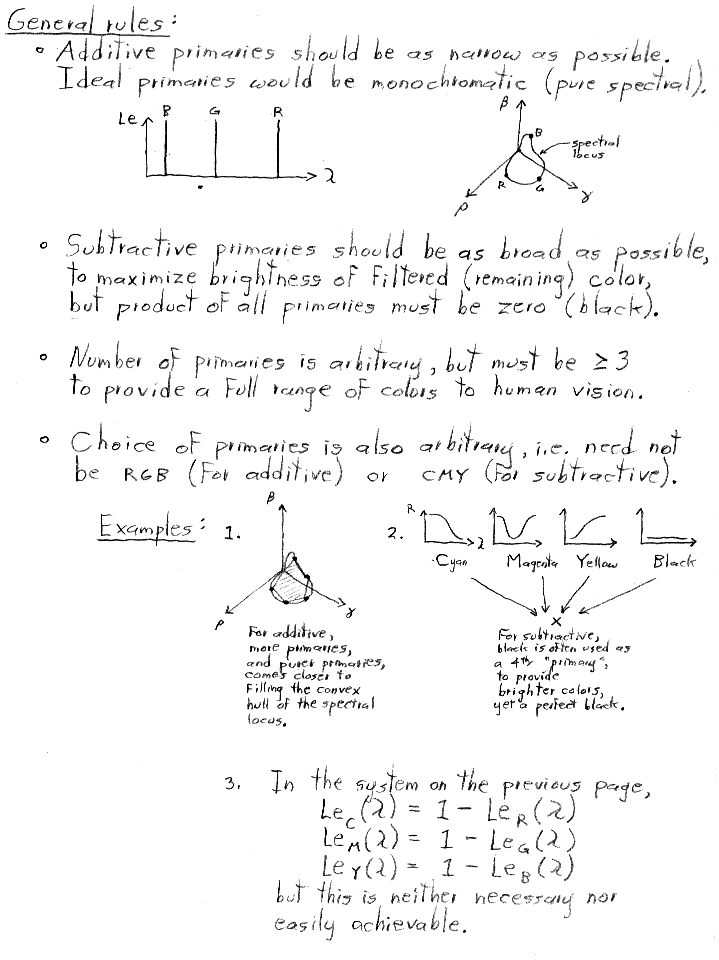 General rules:
• Additive primaries should be as narrow as possible.
Ideal primaries would be monochromatic (pure spectral).
Le B G R λ
β B spectral
locus
R G
ρ γ
• Subtractive primaries should be as broad as possible,
to maximize brightness of filtered (remaining) color,
but product of all primaries must be zero (black).
• Number of primaries is arbitrary, but must be ≥ 3
to provide a full range of colors to human vision.
• Choice of primaries is also arbitrary, i.e. need not
be RGB (for additive) or CMY (for subtractive).
Examples: 1.
β
ρ γ
For additive,
more primaries,
and purer primaries,
comes closer to
filling the convex
hull of the spectral
locus.
2. R λ
Cyan Magenta Yellow Black
X
For subtractive,
black is often used as
a 4th "primary",
to provide
brighter colors,
yet a perfect black.
3. In the system on the previous page,
Le_C(λ) = 1 - Le_R(λ)
Le_M(λ) = 1 - Le_G(λ)
Le_Y(λ) = 1 - Le_B(λ)
but this is neither necessary nor
easily achievable.